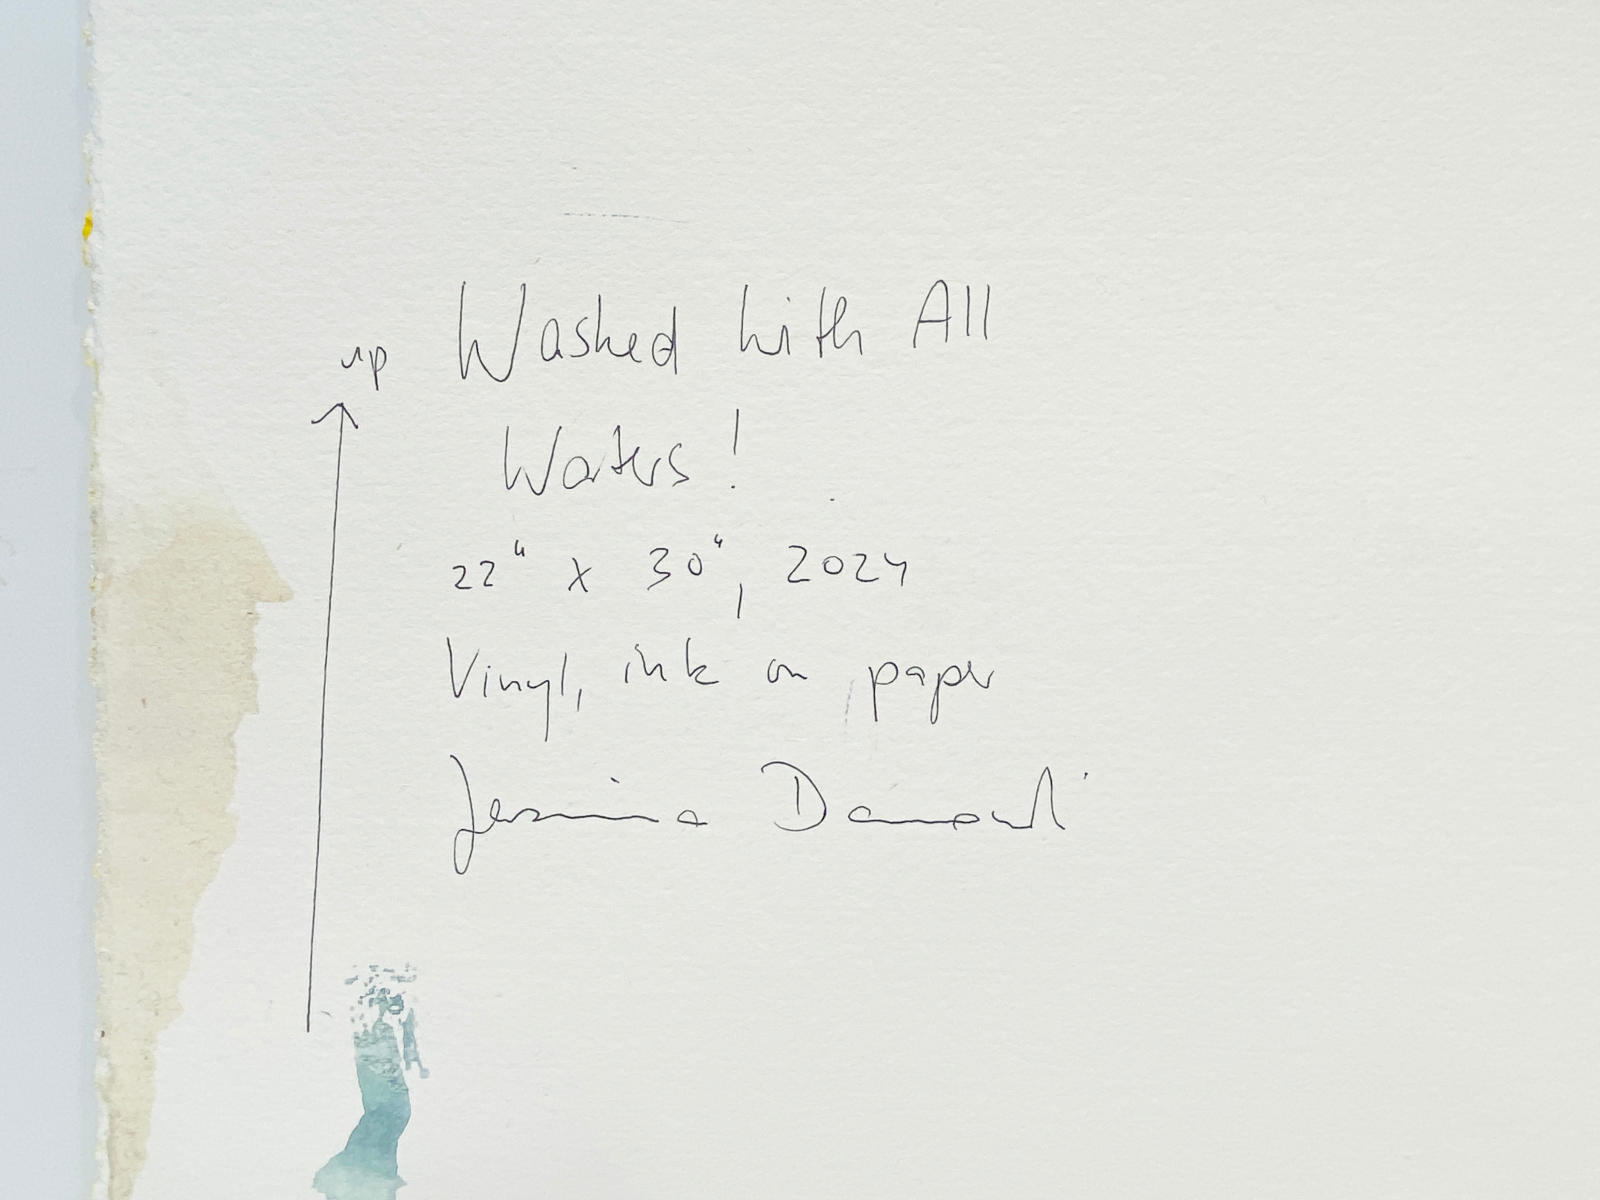 up
Washed with All
Waters!
22" x 30", 2024
Vinyl, ink on paper